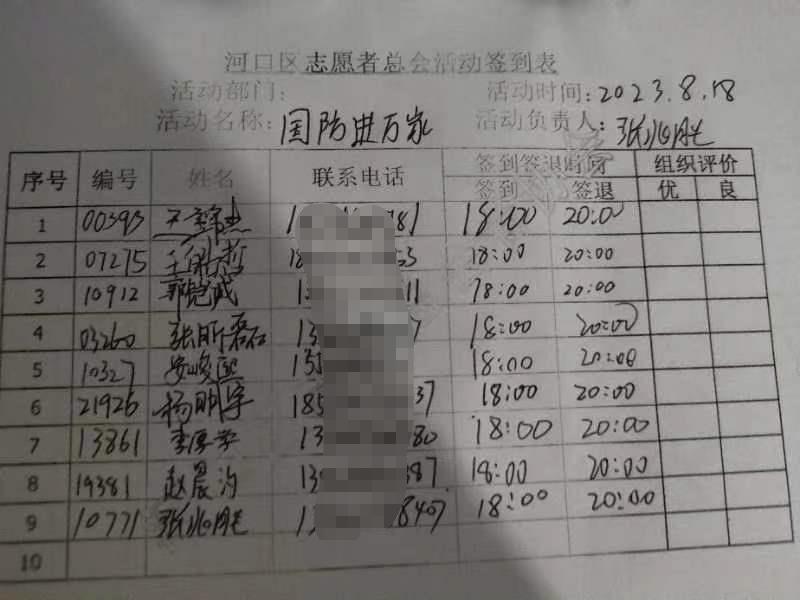 河口区志愿者总会活动签到表
活动部门： 活动时间：2023.8.18
活动名称：国防进万家 活动负责人：张兆胜
序号 编号 姓名 联系电话 签到签退时间 组织评价
签到 签退 优 良
1 00393 1 81 18:00 20:00
2 07275 18 53 18:00 20:00
3 10912 郭皑诚 1 11 18:00 20:00
4 03260 张昕磊 13 7 18:00 20:00
5 10327 15 18:00 20:00
6 21926 杨明宇 185 37 18:00 20:00
7 13861 李厚学 13 80 18:00 20:00
8 19381 赵晨汐 13 87 18:00 20:00
9 10771 张兆胜 1 8407 18:00 20:00
10